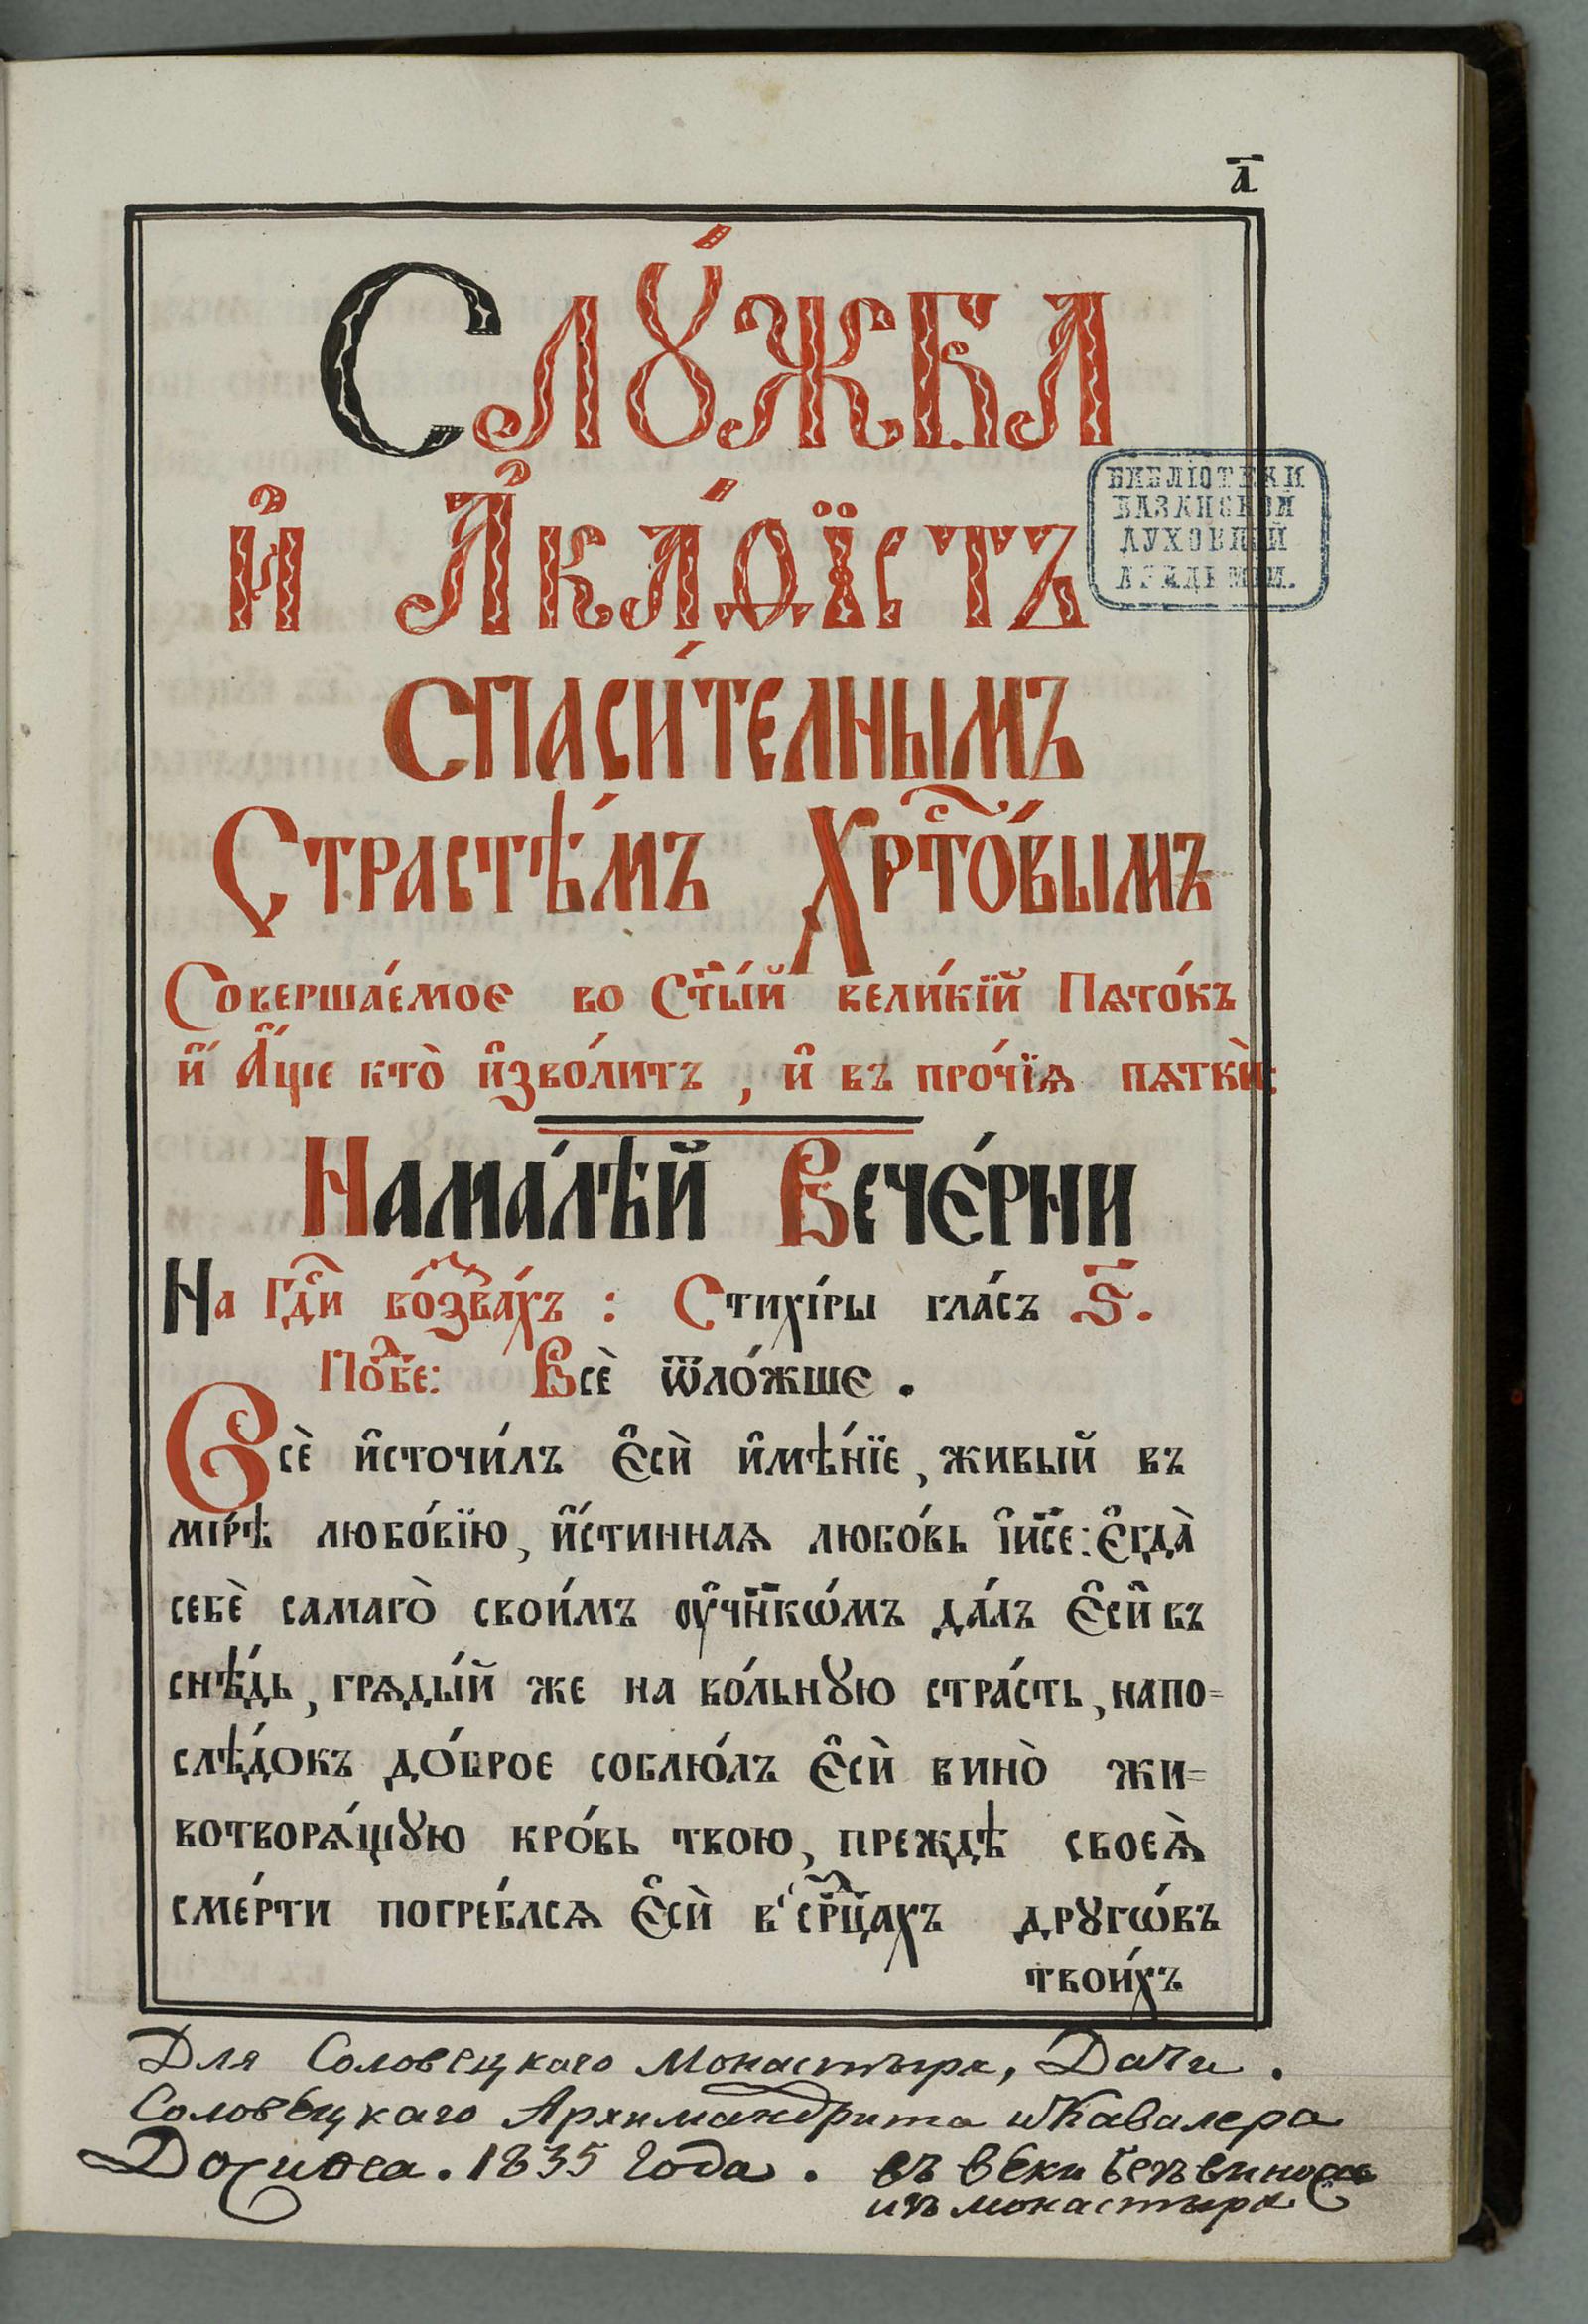 а҃
Слꙋ́жба
и҆ А҆ка́ѳїстъ
спаси́телнымъ
Страстѣ́мъ Хрⷭ҇то́вымъ
Соверша́емое во Ст҃ы́й вели́кїй Пѧто́къ
и҆́ А҆́ще кто̀ и҆зво́литъ , и҆ въ про́чїѧ пѧткѝ:
БИБЛІОТЕКИ
КАЗАНСКОЙ
ДУХОВНОЙ
АКАДЕМІИ.
Нама́лѣй Вече́рни
На Гдⷭ҇и во́ззва́хъ : Стихі́ры гла́съ ѕ҃.
Подо́бе: Всѐ ѿло́жше .
Всѐ и҆сточи́лъ Є҆сѝ и҆мѣ́нїе, живый въ
мі́рѣ любо́вїю, и҆́стиннаѧ любо́вь і҆и҃се: Є҆гда̀
себѐ самаго̀ свои́мъ ᲂу҆чн҃кѡ́мъ да́лъ Є҆сѝ въ
снѣ́дь, грѧды́й же на во́льнꙋю стра́сть, напо=
слѣ́докъ до́брое соблю́лъ Є҆сѝ вино̀ жи=
вотворѧ́щꙋю кро́вь твою, преждѣ своеѧ̀
сме́рти погре́блсѧ Є҆сѝ в' срⷣцахъ дрꙋгѡ́въ
твои́хъ
Для Соловецкаго Монастыря, Дачи .
Соловѣцкаго Архимандрита и Кавалера
Досиѳеа. 1835 года . въ вѣки безъвыносъ
изъ монастыря.